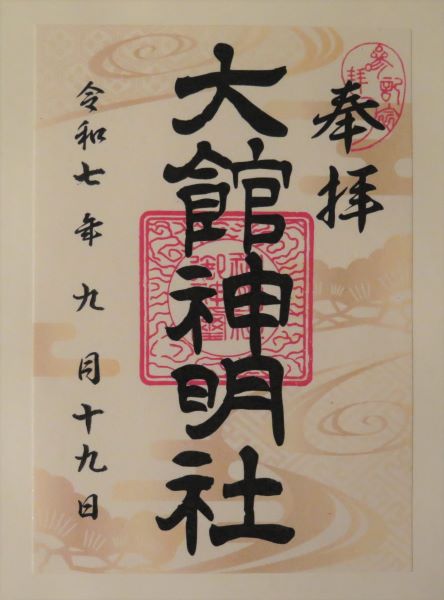 奉拝
大館神明社
令和七年九月十九日